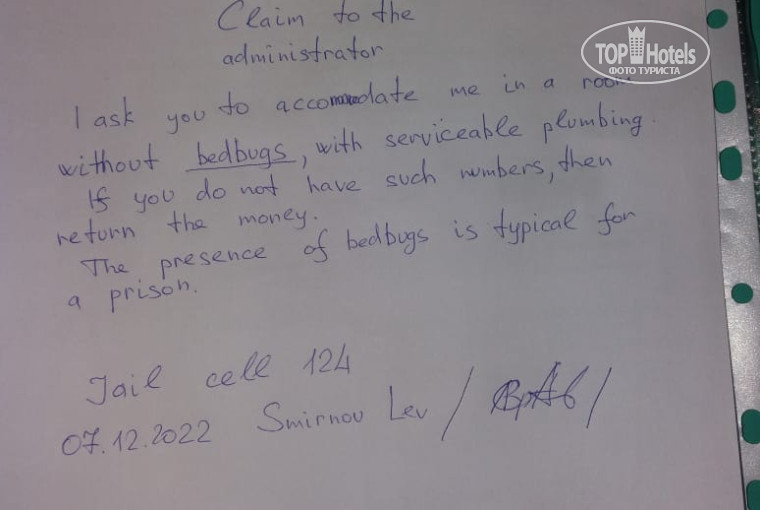 Claim to the
administrator
I ask you to accommodate me in a room
without bedbugs, with serviceable plumbing.
If you do not have such numbers, then
return the money.
The presence of bedbugs is typical for
a prison.
Jail cell 124
07.12.2022 Smirnov Lev / /
TOP Hotels
ФОТО ТУРИСТА